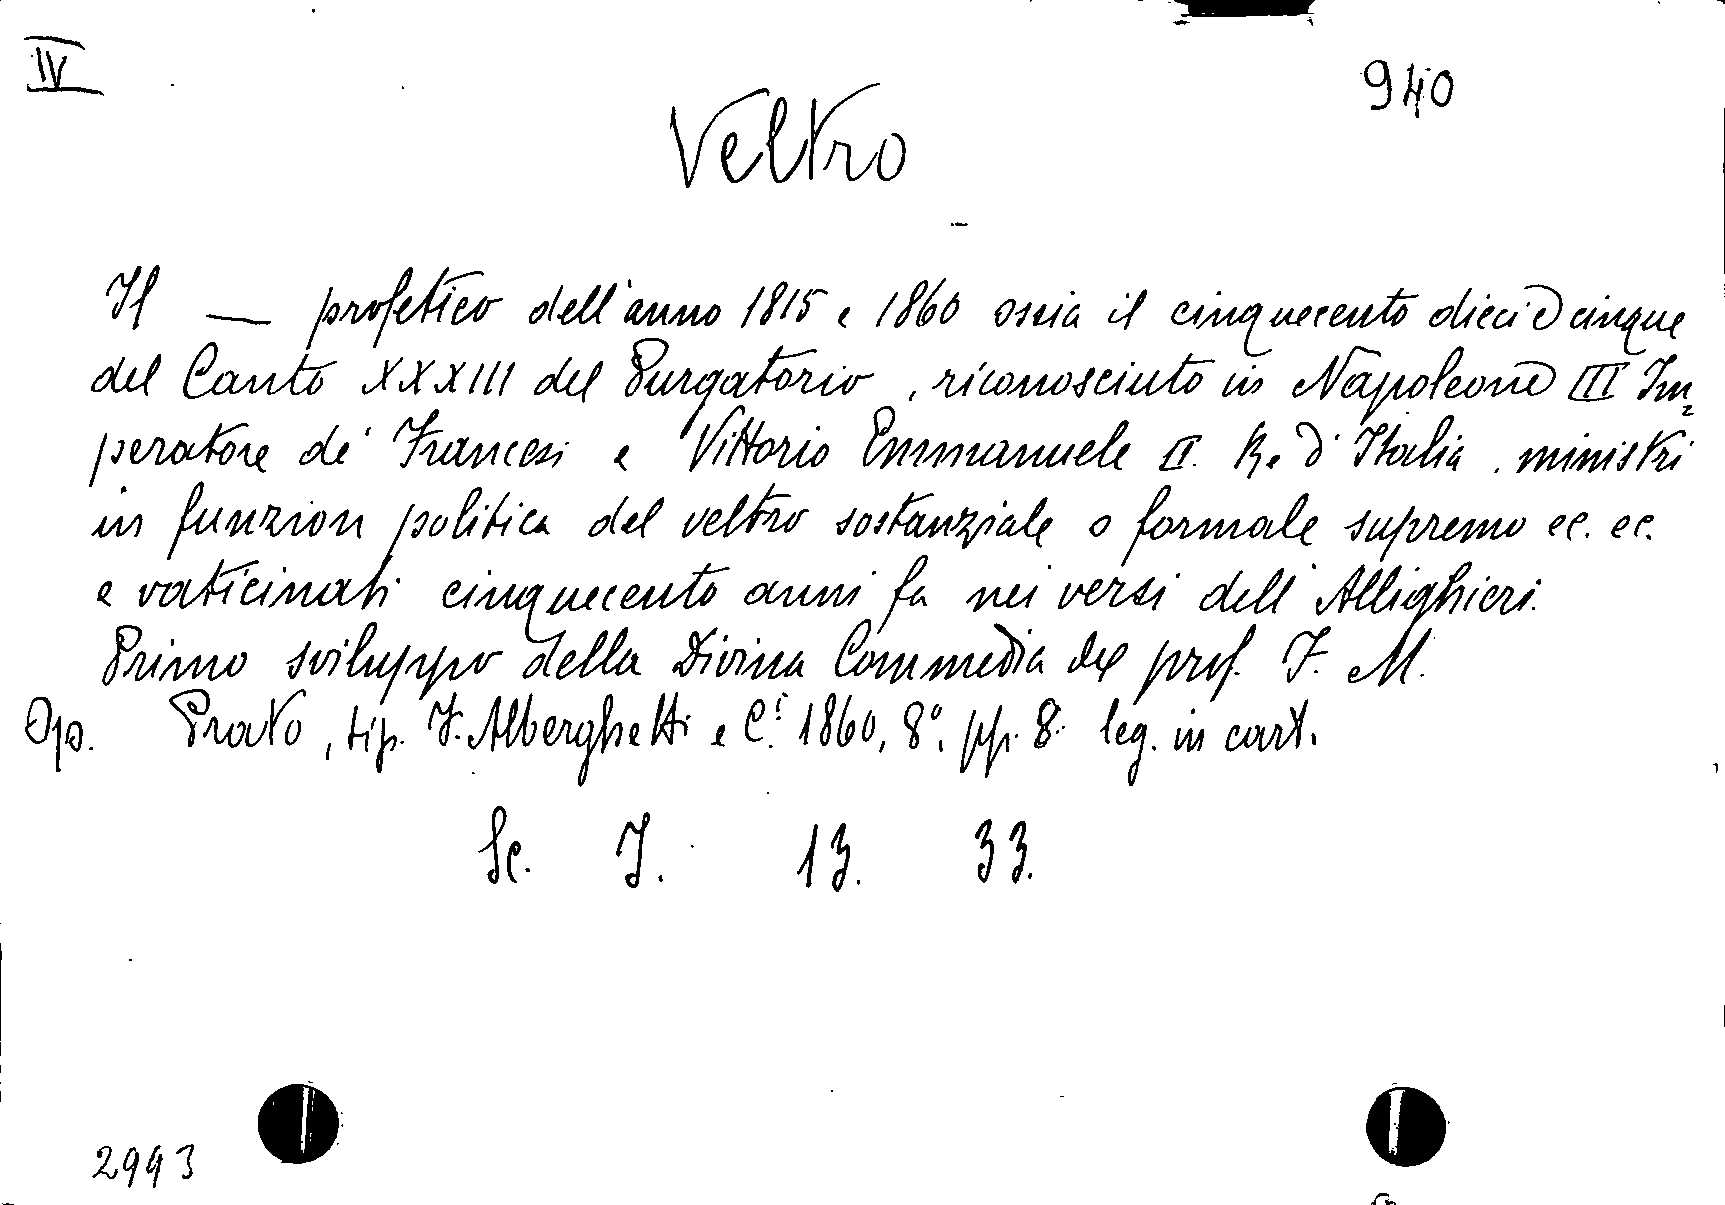 IV
940
Veltro
Il — profetico dell'anno 1815 e 1860 ossia il cinquecento dieci e cinque
del Canto XXXIII del Purgatorio, riconosciuto in Napoleone III Im=
peratore de' Francesi e Vittorio Emmanuele II. Re d'Italia, ministri
in funzion politica del veltro sostanziale o formale supremo ec. ec.
e vaticinati cinquecento anni fa nei versi dell'Allighieri.
Primo sviluppo della Divina Commedia del prof. F. M.
Op. Prato, tip. F. Alberghetti e C.i 1860, 8°, pp. 8. leg. in cart.
Sc. I. 13. 33.
2993